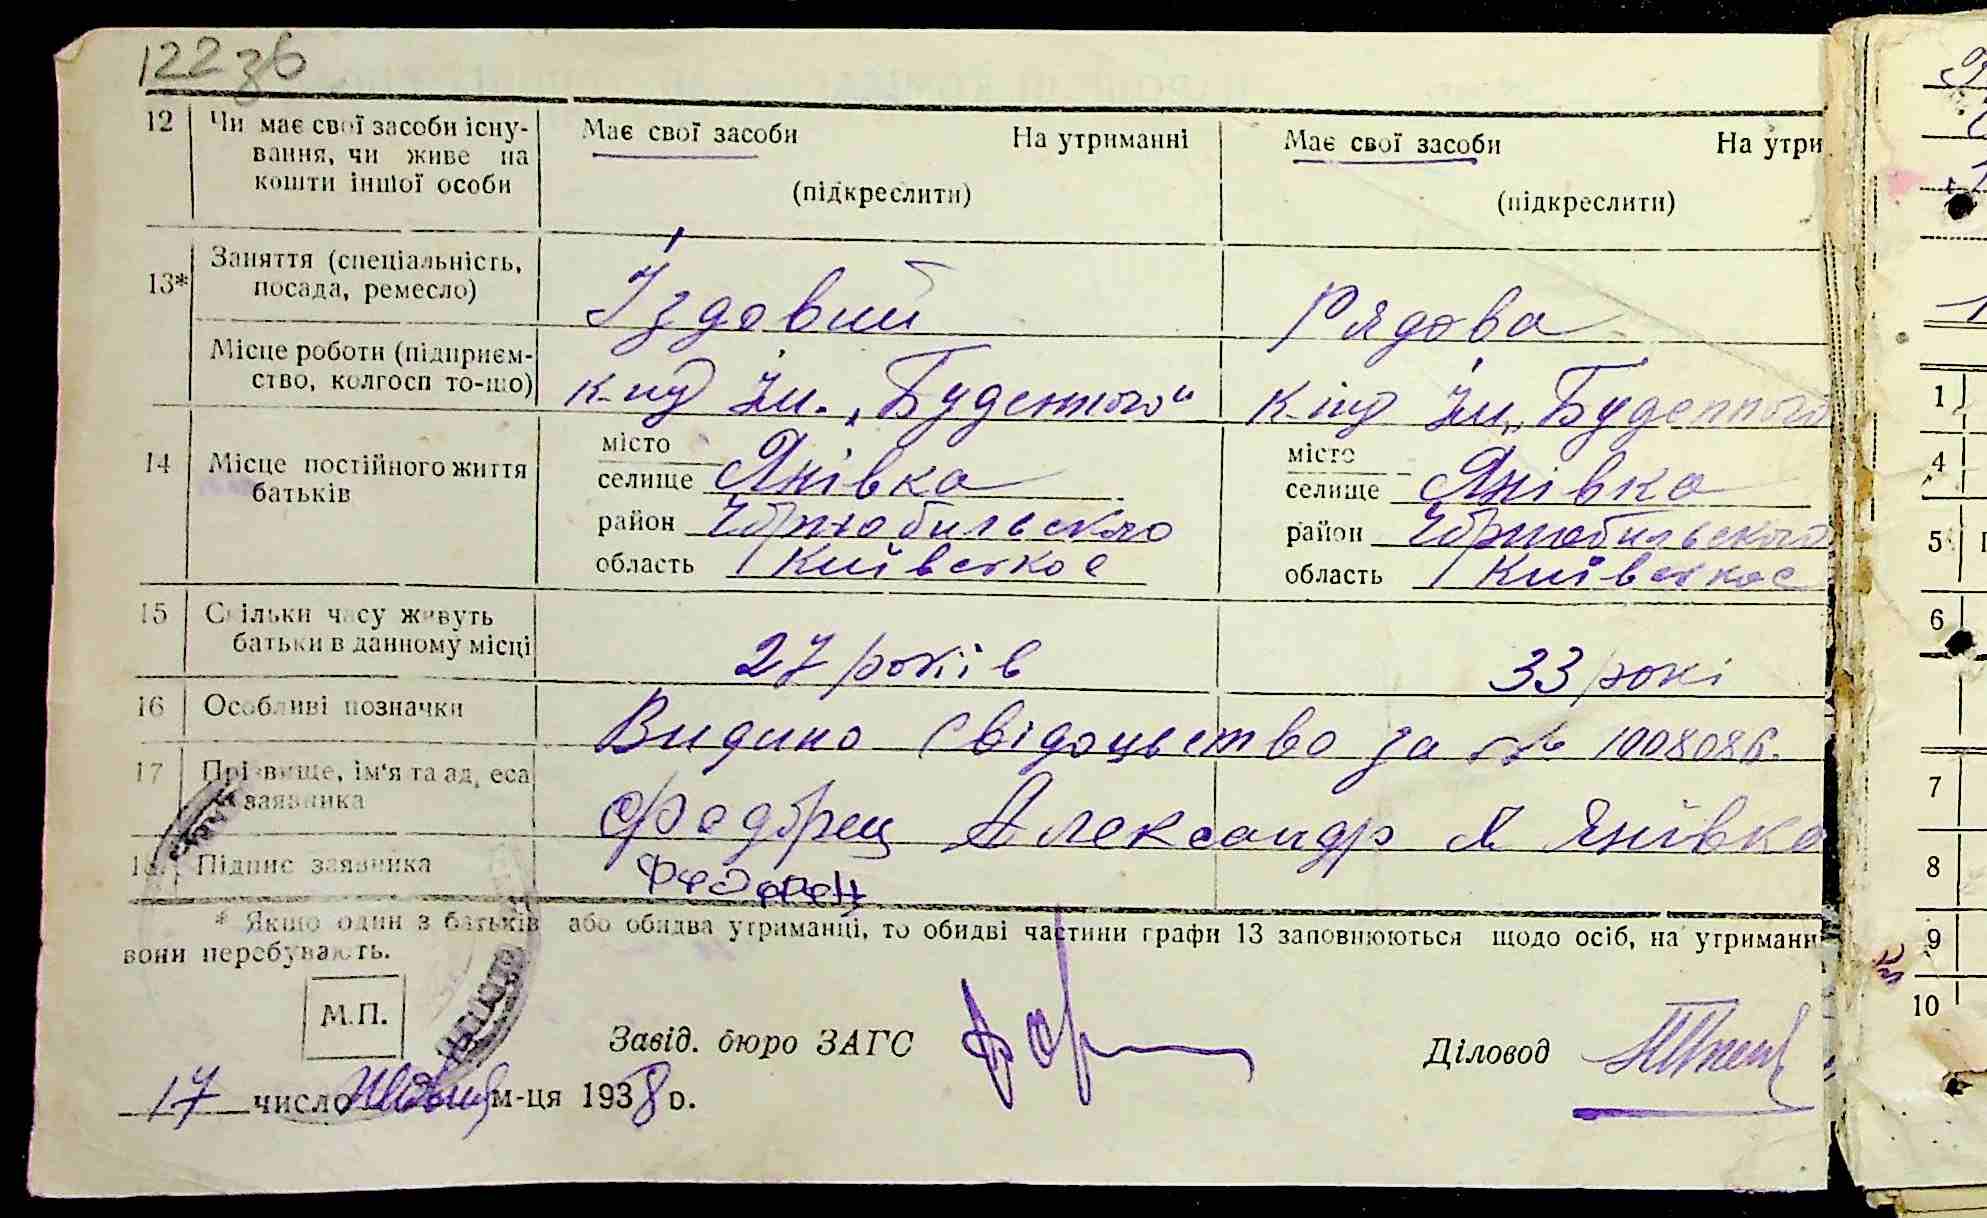 122зв
12 Чи має свої засоби існу- Має свої засоби На утриманні Має свої засоби На утри
вання, чи живе на
кошти іншої особи (підкреслити) (підкреслити)
13* Заняття (спеціальність,
посада, ремесло) Їздовий Рядова
Місце роботи (підприєм-
ство, колгосп то-що) к-гид Ім. „Буденного" к-гид Ім. „Буденного
14 Місце постійного життя
батьків
місто місто
селище Янівка селище Янівка
район Чорнобильского район Чорнобильского
область Київської область Київської
15 Скільки часу живуть
батьки в данному місці 27 років 33 рокі
16 Особливі позначки Видано свідоцьство за № 1008086.
17 Прізвище, ім'я та адреса
заявника Федорец Александр Я Янівка
18 Підпис заявника Федорец
* Якщо один з батьків або обидва утриманці, то обидві частини графи 13 заповнюються щодо осіб, на утриманн
вони перебувають.
М.П.
Завід. бюро ЗАГС Діловод
17 число м-ця 1938 р.
1
4
5
6
7
8
9
10